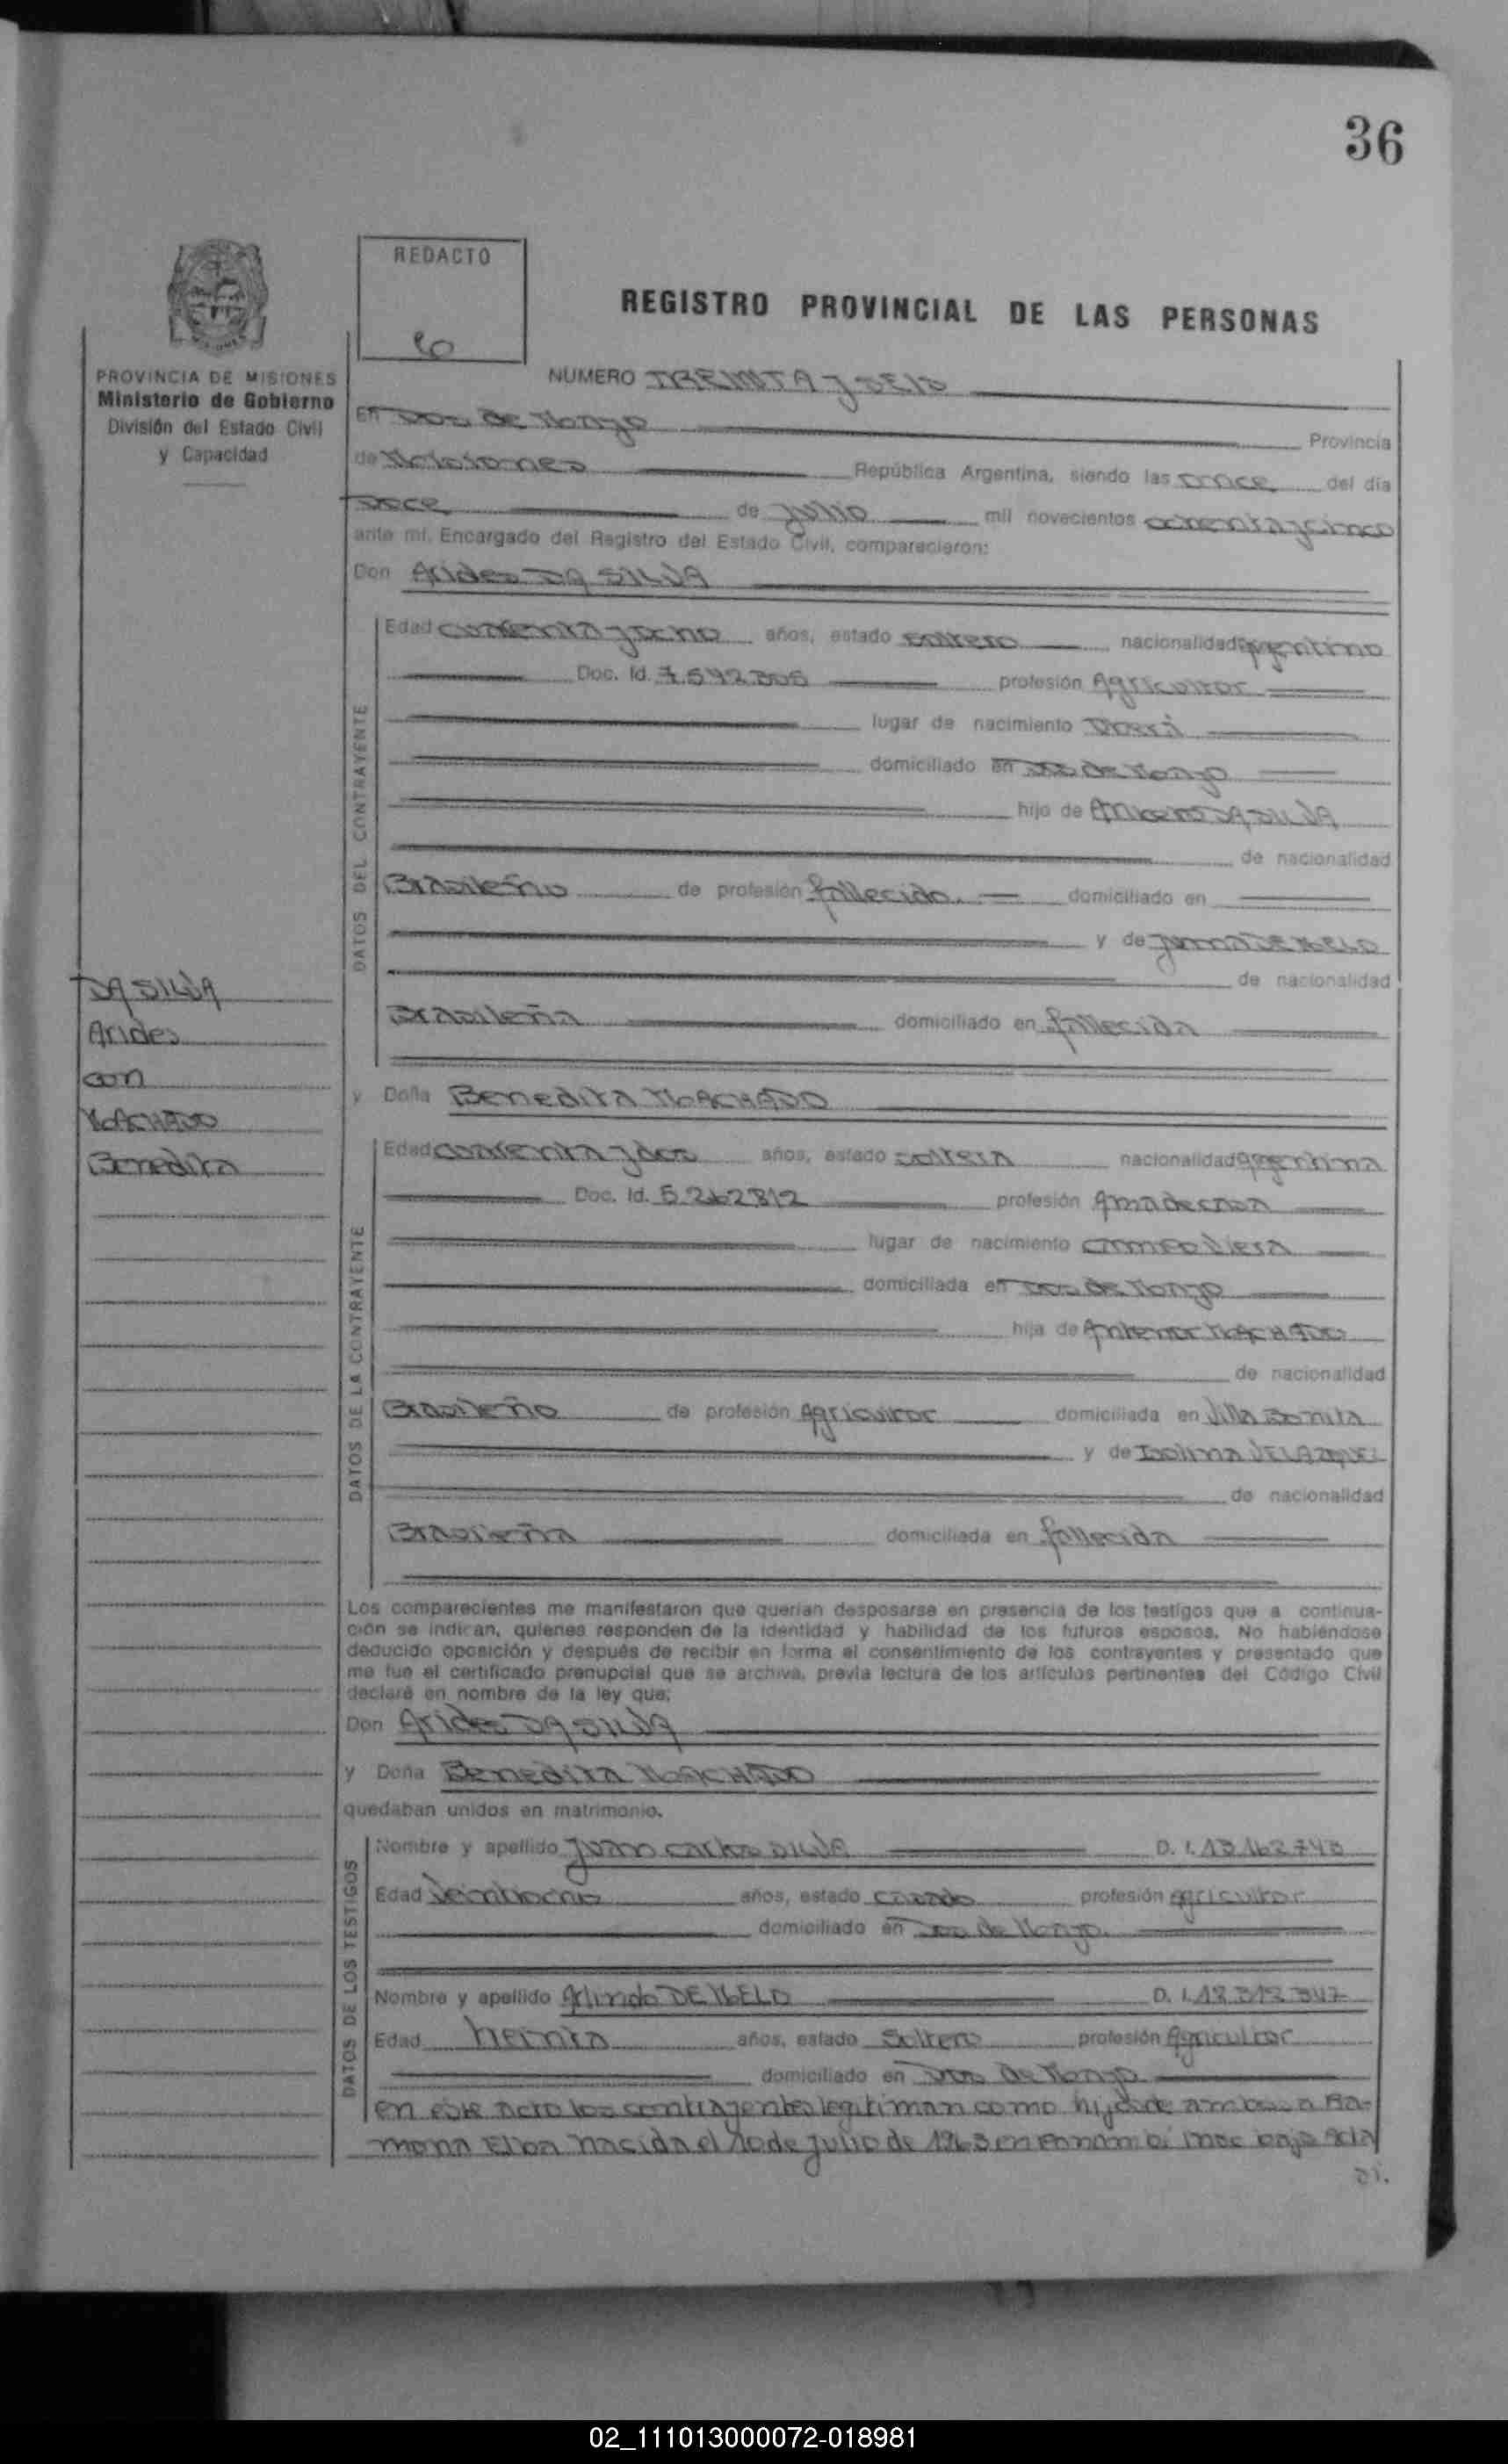 36
REDACTO
REGISTRO PROVINCIAL DE LAS PERSONAS
PROVINCIA DE MISIONES
Ministerio de Gobierno
División del Estado Civil
y Capacidad
NUMERO TREINTA y SEIS
En Dos de Mayo Provincia
de Misiones República Argentina, siendo las once del día
Doce de Julio mil novecientos ochentaycinco
ante mí, Encargado del Registro del Estado Civil, comparecieron:
Don Arides DA SILVA
DATOS DEL CONTRAYENTE
Edad cuarenta y ocho años, estado soltero nacionalidad argentino
Doc. Id. 7.542.305 profesión Agricultor
lugar de nacimiento
domiciliado en Dos de Mayo
hijo de DA SILVA
de nacionalidad
Brasileño de profesión fallecido. domiciliado en
y de DE MELO
de nacionalidad
Brasileña domiciliado en fallecida
DA SILVA
Arides
con
MACHADO
Benedita
y Doña Benedita MACHADO
DATOS DE LA CONTRAYENTE
Edad cuarenta y dos años, estado soltera nacionalidad argentina
Doc. Id. 5.262812 profesión Amadecasa
lugar de nacimiento Campo Viera
domiciliada en Dos de Mayo
hija de Antenor MACHADO
de nacionalidad
Brasileño de profesión Agricultor domiciliada en Villa Bonita
y de Isolina VELAZQUEZ
de nacionalidad
Brasileña domiciliada en fallecida
Los comparecientes me manifestaron que querían desposarse en presencia de los testigos que a continua-
ción se indican, quienes responden de la identidad y habilidad de los futuros esposos. No habiéndose
deducido oposición y después de recibir en forma el consentimiento de los contrayentes y presentado que
me fue el certificado prenupcial que se archiva, previa lectura de los artículos pertinentes del Código Civil
declaré en nombre de la ley que:
Don Arides DA SILVA
y Doña Benedita MACHADO
quedaban unidos en matrimonio.
DATOS DE LOS TESTIGOS
Nombre y apellido Juan Carlos SILVA D. I. 13.162.743
Edad años, estado casado profesión agricultor
domiciliado en Dos de Mayo.
Nombre y apellido Arlindo DE MELO D. I. 18.312.347
Edad treinta años, estado Soltero profesión Agricultor
domiciliado en Dos de Mayo
en este acto los contrayentes legitiman como hija de ambos a Ra-
mona Elba nacida el 10 de julio de 1963 en Panambi insc bajo acta
02_111013000072-018981